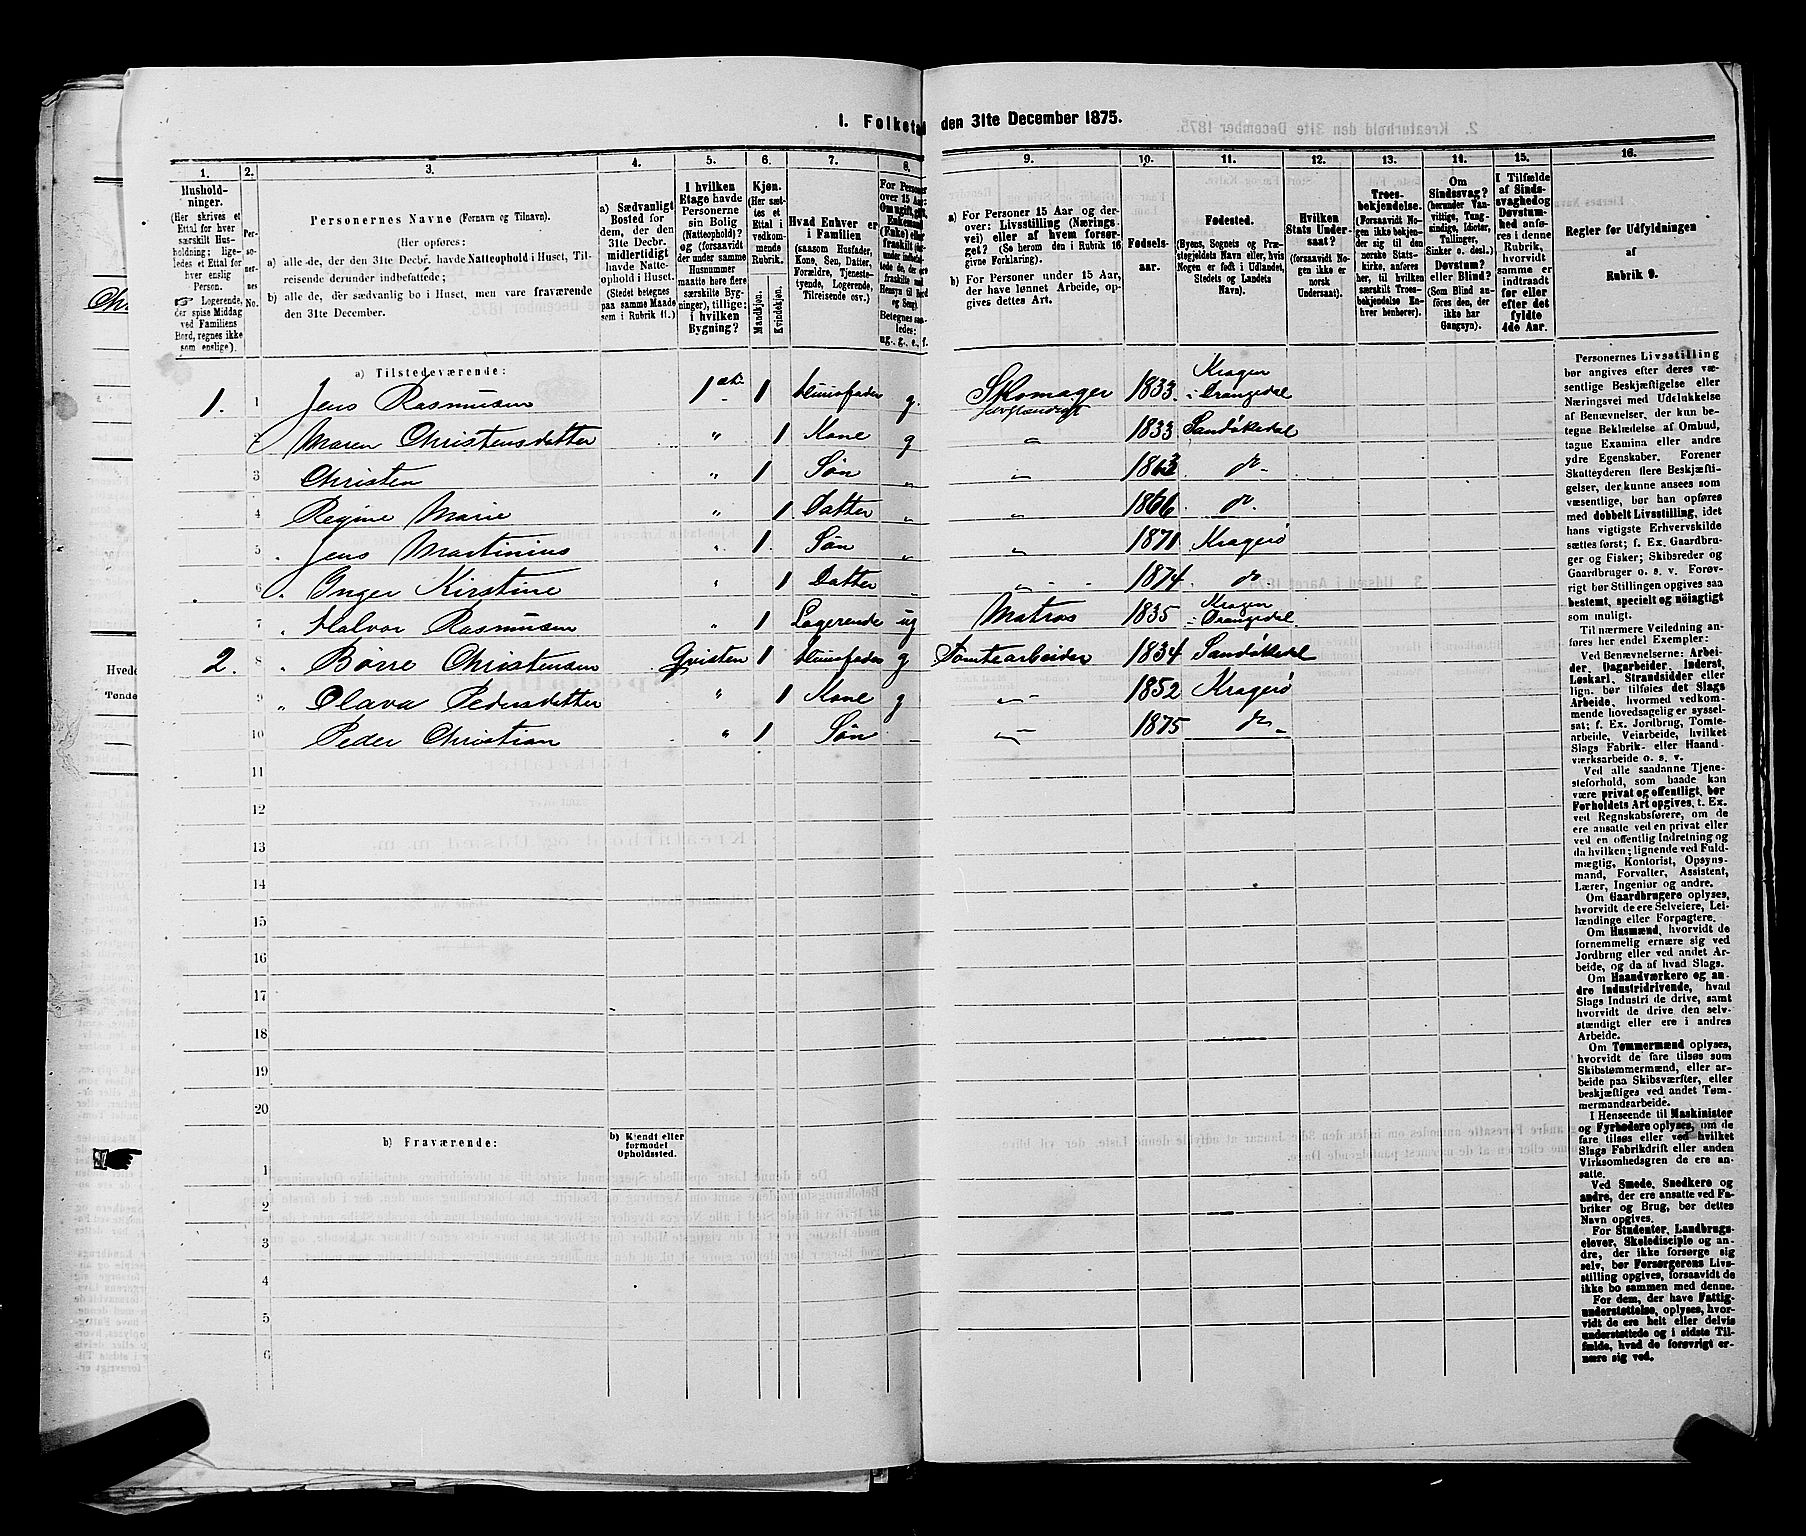 1. Folketal den 31te December 1875.
1. 2. 3. 4. 5. 6. 7. 8. 9. 10. 11. 12. 13. 14. 15. 16.
Hushold-
ninger.
(Her skrives et
Ettal for hver
særskilt Hus-
holdning; lige-
ledes et Ettal for
hver enslig
Person.
☞ Logerende,
der spise Middag
ved Familiens
Bord, regnes ikke
som enslige).
Per-
so-
ner-
nes
No.
Personernes Navne (Fornavn og Tilnavn).
(Her opføres:
a) alle de, der den 31te Decbr. havde Natteophold i Huset, Til-
reisende derunder indbefattede;
b) alle de, der sædvanlig bo i Huset, men vare fraværende
den 31te December.
a) Sædvanligt
Bosted for
dem, der den
31te Decbr.
midlertidigt
havde Natte-
ophold i Huset
(Stedet betegnes
paa samme Maade
som i Rubrik 11.)
I hvilken
Etage havde
Personerne
sin Bolig
(Natteophold)?
og (forsaavidt
der under samme
Husnummer
maatte høre flere
særskilte Byg-
ninger), tillige:
i hvilken
Bygning?
Kjøn.
(Her sæt-
tes et
Ettal i
vedkom-
mende
Rubrik.
Mandkjøn.
Kvindekjøn.
Hvad Enhver er
i Familien
(saasom Husfader,
Kone, Søn, Datter,
Forældre, Tjeneste-
tyende, Logerende,
Tilreisende osv.)
For Personer
over 15 Aar:
Om ugift, gift,
Enkemand
(Enke) eller
fraskilt
Betegnes saa-
ledes:
ug., g., e., f.
a) For Personer 15 Aar og der-
over: Livsstilling (Nærings-
vei) eller af hvem forsør-
get? (Se herom den i Rubrik 16
givne Forklaring).
b) For Personer under 15 Aar,
der have lønnet Arbeide, op-
gives dettes Art.
Fødsels-
aar.
Fødested.
(Byens, Sognets og Præ-
stegjeldets Navn eller, hvis
Nogen er født i Udlandet,
Stedets og Landets
Navn).
Hvilken
Stats Under-
saat?
(forsaavidt No-
gen ikke er
norsk
Undersaat).
Troes-
bekjendelse.
(Forsaavidt No-
gen ikke bekjen-
der sig til den
norske Stats-
kirke, anføres
her, til hvilken
særskilt Troes-
bekjendelse En-
hver henhører).
Om
Sindssvag?
(herunder Van-
vittige, Tung-
sindige, Idioter,
Tullinger,
Sinker o. desl.)
Døvstum?
eller Blind?
(Som Blind an-
føres den, der
ikke har
Gangsyn).
I Tilfælde
af Sinds-
svaghed og
Døvstum-
hed anfø-
res i denne
Rubrik,
hvorvidt
samme er
indtraadt
før eller
efter det
fyldte
4de Aar.
Regler for Udfyldningen
af
Rubrik 9.
a) Tilstedeværende:
1. 1 Jens Rasmusen 1 etc 1 Husfader g. Skomager 1833 Kragerø Drangedal
2 Maren Christensdatter " 1 Kone g " 1833 Sandøkedal
3 Christen " 1 Søn " " 1863 do
4 Regine Marie " 1 Datter " " 1866 do
5 Jens Martinius " 1 Søn " " 1871 Kragerø
6 Inger Kirstine " 1 Datter " 1874 do
7 Halvor Rasmusen " 1 Logerende ug Matros 1835 Drangedal
2. 8 Børre Christensen Qvisten 1 Husfader g Tomtearbeider 1834 Sandøkedal
9 Olava Pedersdatter " 1 Kone g " 1852 Kragerø
10 Peder Christian " 1 Søn " 1875 do
11
12
13
14
15
16
17
18
19
20
b) Fraværende:
b) Kjendt eller
formodet
Opholdssted.
1
2
3
4
5
6
Personernes Livsstilling
bør angives efter deres væ-
sentlige Beskjæftigelse eller
Næringsvei med Udelukkelse
af Benævnelser, der kun be-
tegne Beklædelse af Ombud,
tagne Examina eller andre
ydre Egenskaber. Forener
Skatteyderen flere Beskjæfti-
gelser, der kunne ansees som
væsentlige, bør han opføres
med dobbelt Livsstilling, idet
hans vigtigste Erhvervskilde
sættes først; f. Ex. Gaardbru-
ger og Fisker; Skibsreder og
Gaardbruger o. s. v. Forøv-
rigt bør Stillingen opgives saa
bestemt, specielt og nøiagtigt
som muligt.
Til nærmere Veiledning an-
føres her endel Exempler:
Ved Benævnelserne: Arbei-
der, Dagarbeider, Inderst,
Løskarl, Strandsidder eller
lign. bør tilføies det Slags
Arbeide, hvormed vedkom-
mende hovedsagelig er syssel-
sat; f. Ex. Jordbrug, Tomte-
arbeide, Veiarbeide, hvilket
Slags Fabrik- eller Haand-
værksarbeide o. s. v.
Ved alle saadanne Tjene-
steforhold, som baade kan
være privat og offentligt, bør
Forholdets Art opgives, t. Ex.
ved Regnskabsførere, om de
ere ansatte ved en privat eller
ved en offentlig Indretning og
da hvilken; lignende ved Fuld-
mægtig, Kontorist, Opsyns-
mand, Forvalter, Assistent,
Lærer, Ingeniør og andre.
Om Gaardbrugere oplyses,
hvorvidt de ere Selveiere, Lei-
lændinge eller Forpagtere.
Om Husmænd, hvorvidt de
fornemmelig ernære sig ved
Jordbrug eller ved andet Ar-
beide, og da af hvad Slags.
Om Haandværkere og an-
dre Industridrivende, hvad
Slags Industri de drive, samt
hvorvidt de drive den selv-
stændigt eller ere i andres
Arbeide.
Om Tømmermænd oplyses,
hvorvidt de fare tilsøs som
Skibstømmermænd, eller ar-
beide paa Skibsværfter, eller
beskjæftiges ved andet Tøm-
mermandsarbeide.
I Henseende til Maskinister
og Fyrbødere oplyses, om de
fare tilsøs eller ved hvilket
Slags Fabrikdrift eller anden
Virksomhedsgren de ere an-
satte.
Ved Smede, Snedkere og
andre, der ere ansatte ved Fa-
briker og Brug, bør dettes
Navn opgives.
For Studenter, Landbrugs-
elever, Skoledisciple og an-
dre, der ikke forsørge sig
selv, bør Forsørgerens Livs-
stilling opgives, forsaavidt de
ikke bo sammen med denne.
For dem, der have Fattig-
understøttelse, oplyses, hvor-
vidt de ere helt eller delvis
understøttede og i sidste Til-
fælde, hvad de forøvrigt er-
nære sig ved.